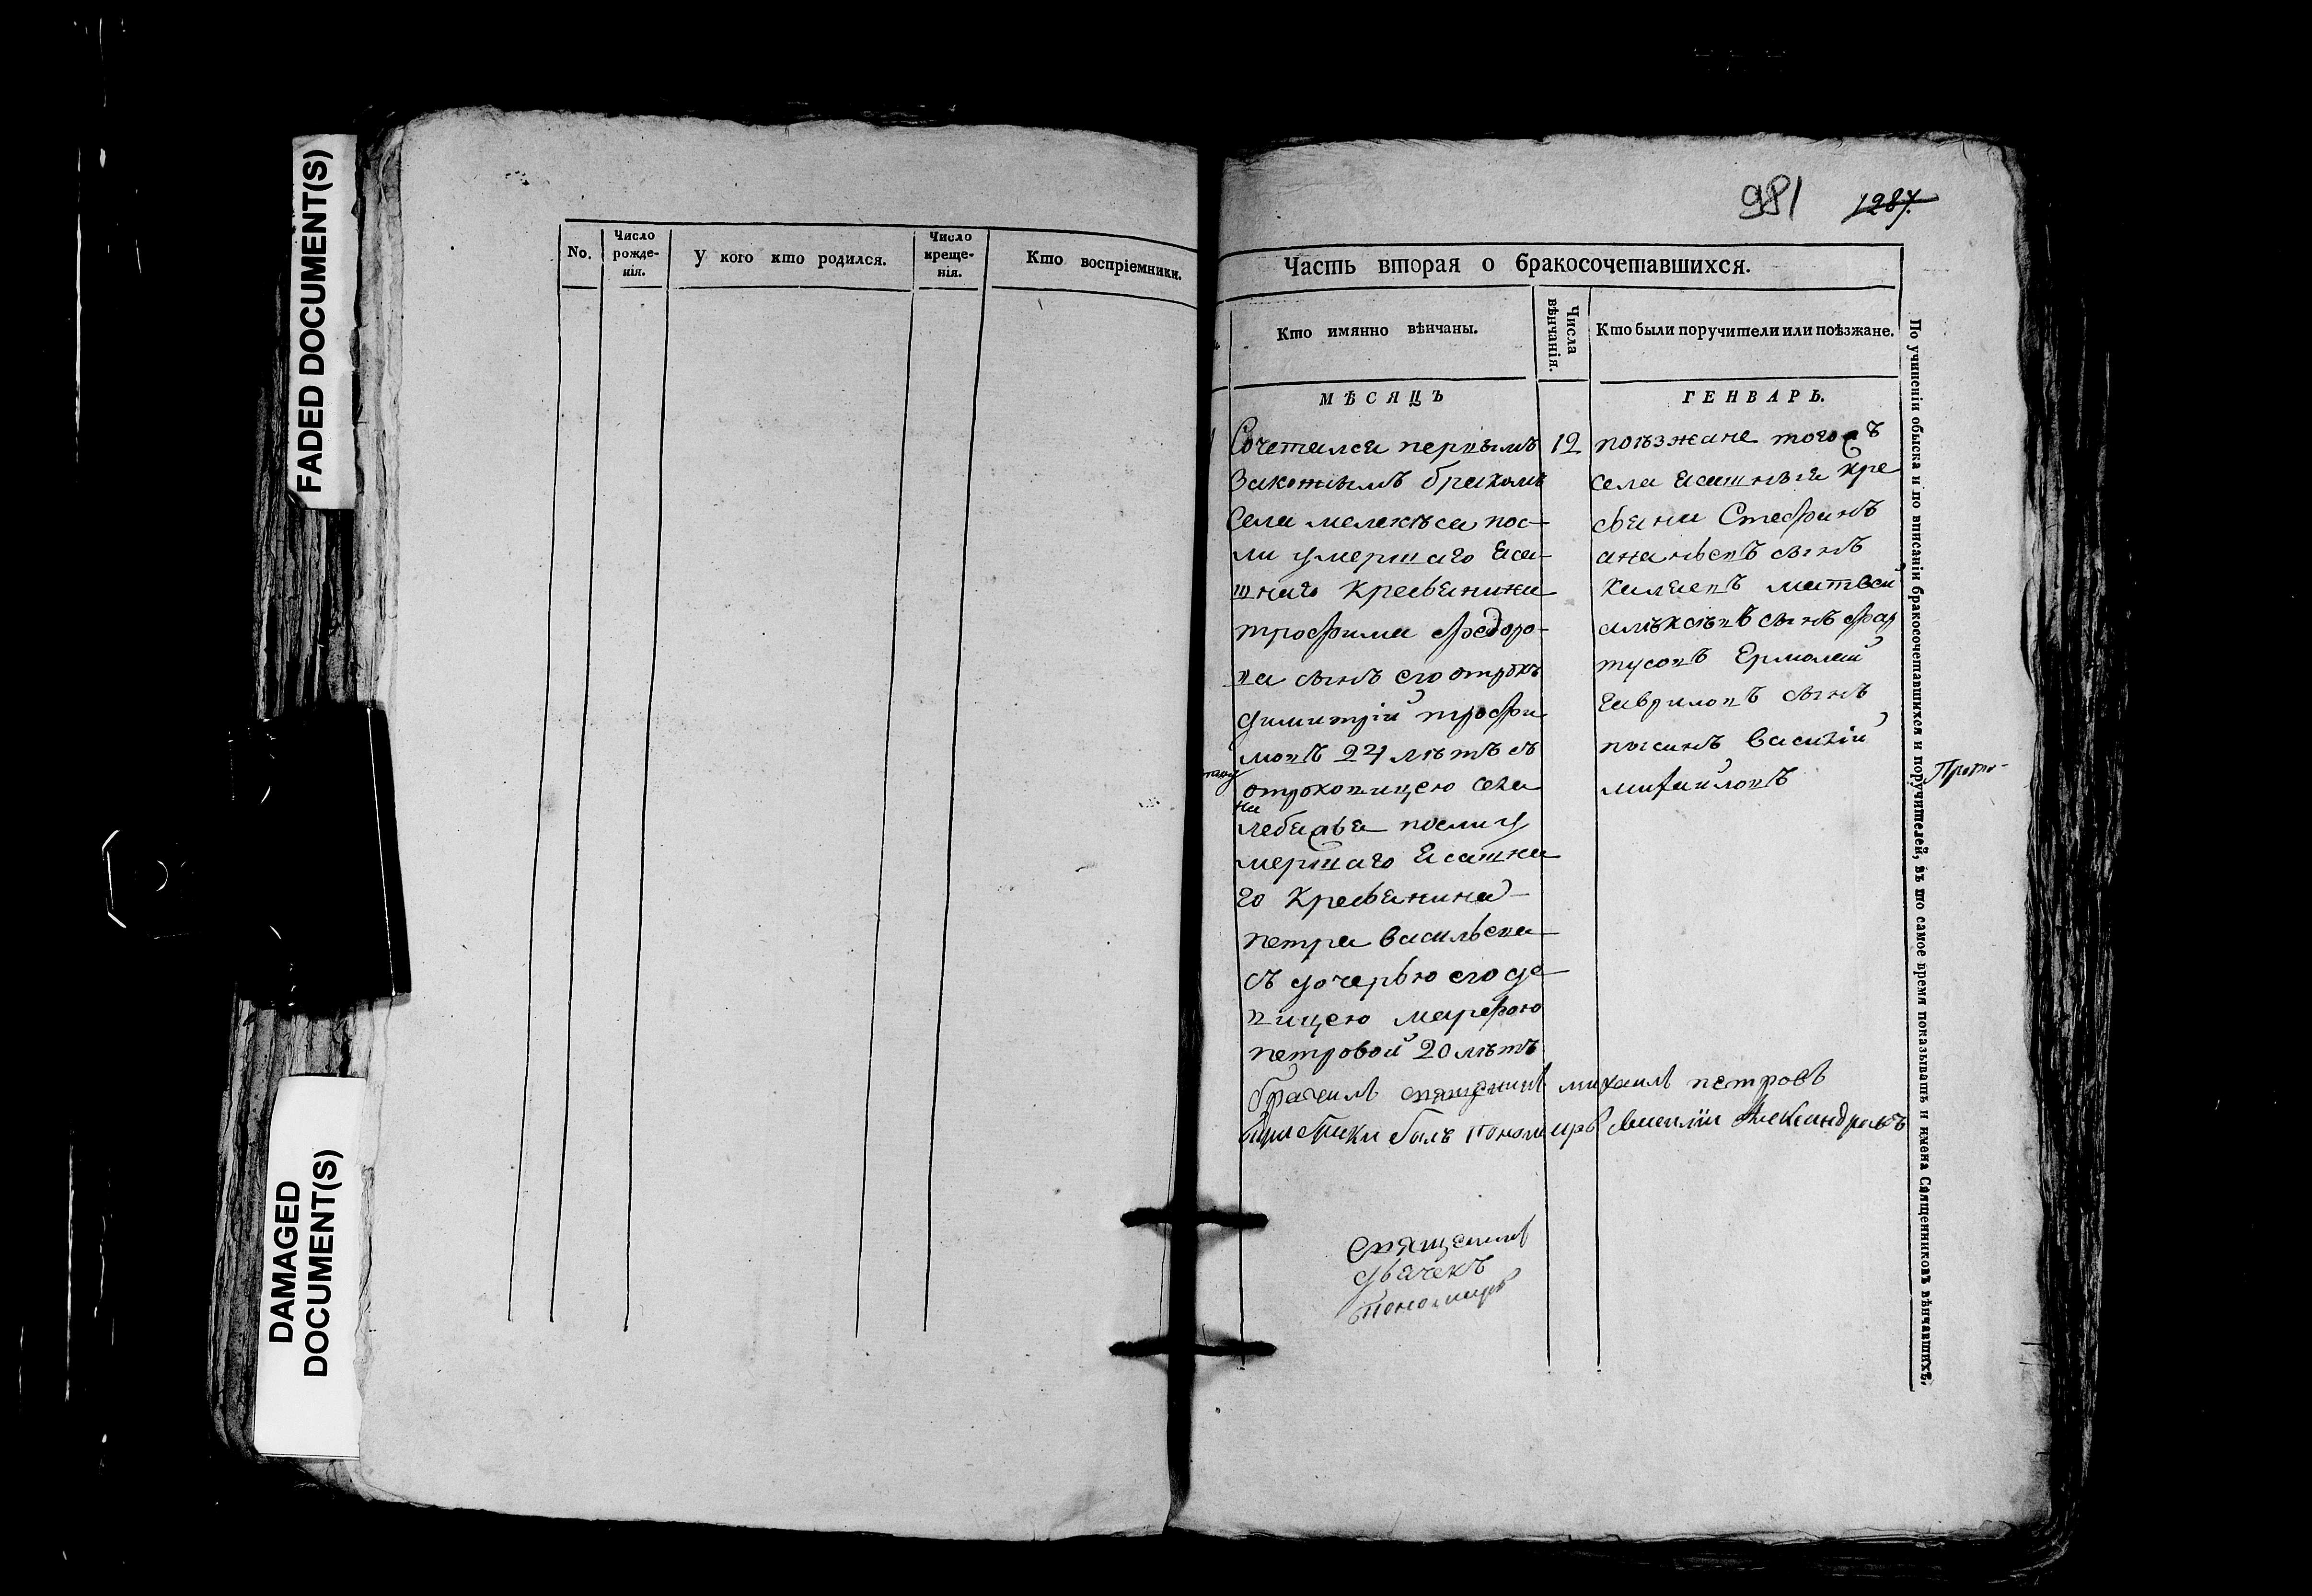 FADED DOCUMENT(S)
DAMAGED
DOCUMENT(S)
No.
Число
рожде-
нія.
У кого кто родился.
Число
креще-
нія.
Кто воспріемники.
981 1287.
Часть вторая о бракосочетавшихся.
Кто имянно вѣнчаны.
Числа
вѣнчанія.
Кто были поручители или поѣзжане.
МѢСЯЦЪ
ГЕНВАРЬ.
Сочетался первымъ
законнымъ бракомъ
села мелекѣса пос-
ли умершаго Яса-
шнаго Кресьянина
трофима федоро-
ва сынъ его отрокъ
димитрій трофи
мовъ 21 лѣтъ съ
отроковицею села
лебежья посли у
мершаго Ясашна
го Кресьянина
петра васильева
съ дочерью его де
вицею марфою
петровой 20 лѣтъ
12
поѣзжане того ъ
села ясашныя кре
сьяни Стефанъ
ананьевъ сынъ
матвей
алѣксѣевъ сынъ фар
тусовъ Ермолай
гавриловъ сынъ
василій
михайловъ
Прото-
брачилъ священникъ михаилъ петровъ
былъ Пономарь Василій Александровъ
Священникъ
дьячекъ
пономарь
По учиненіи обыска и по вписаніи бракосочетавшихся и поручителей, въ то самое время показывать и имена Священниковъ вѣнчавшихъ.